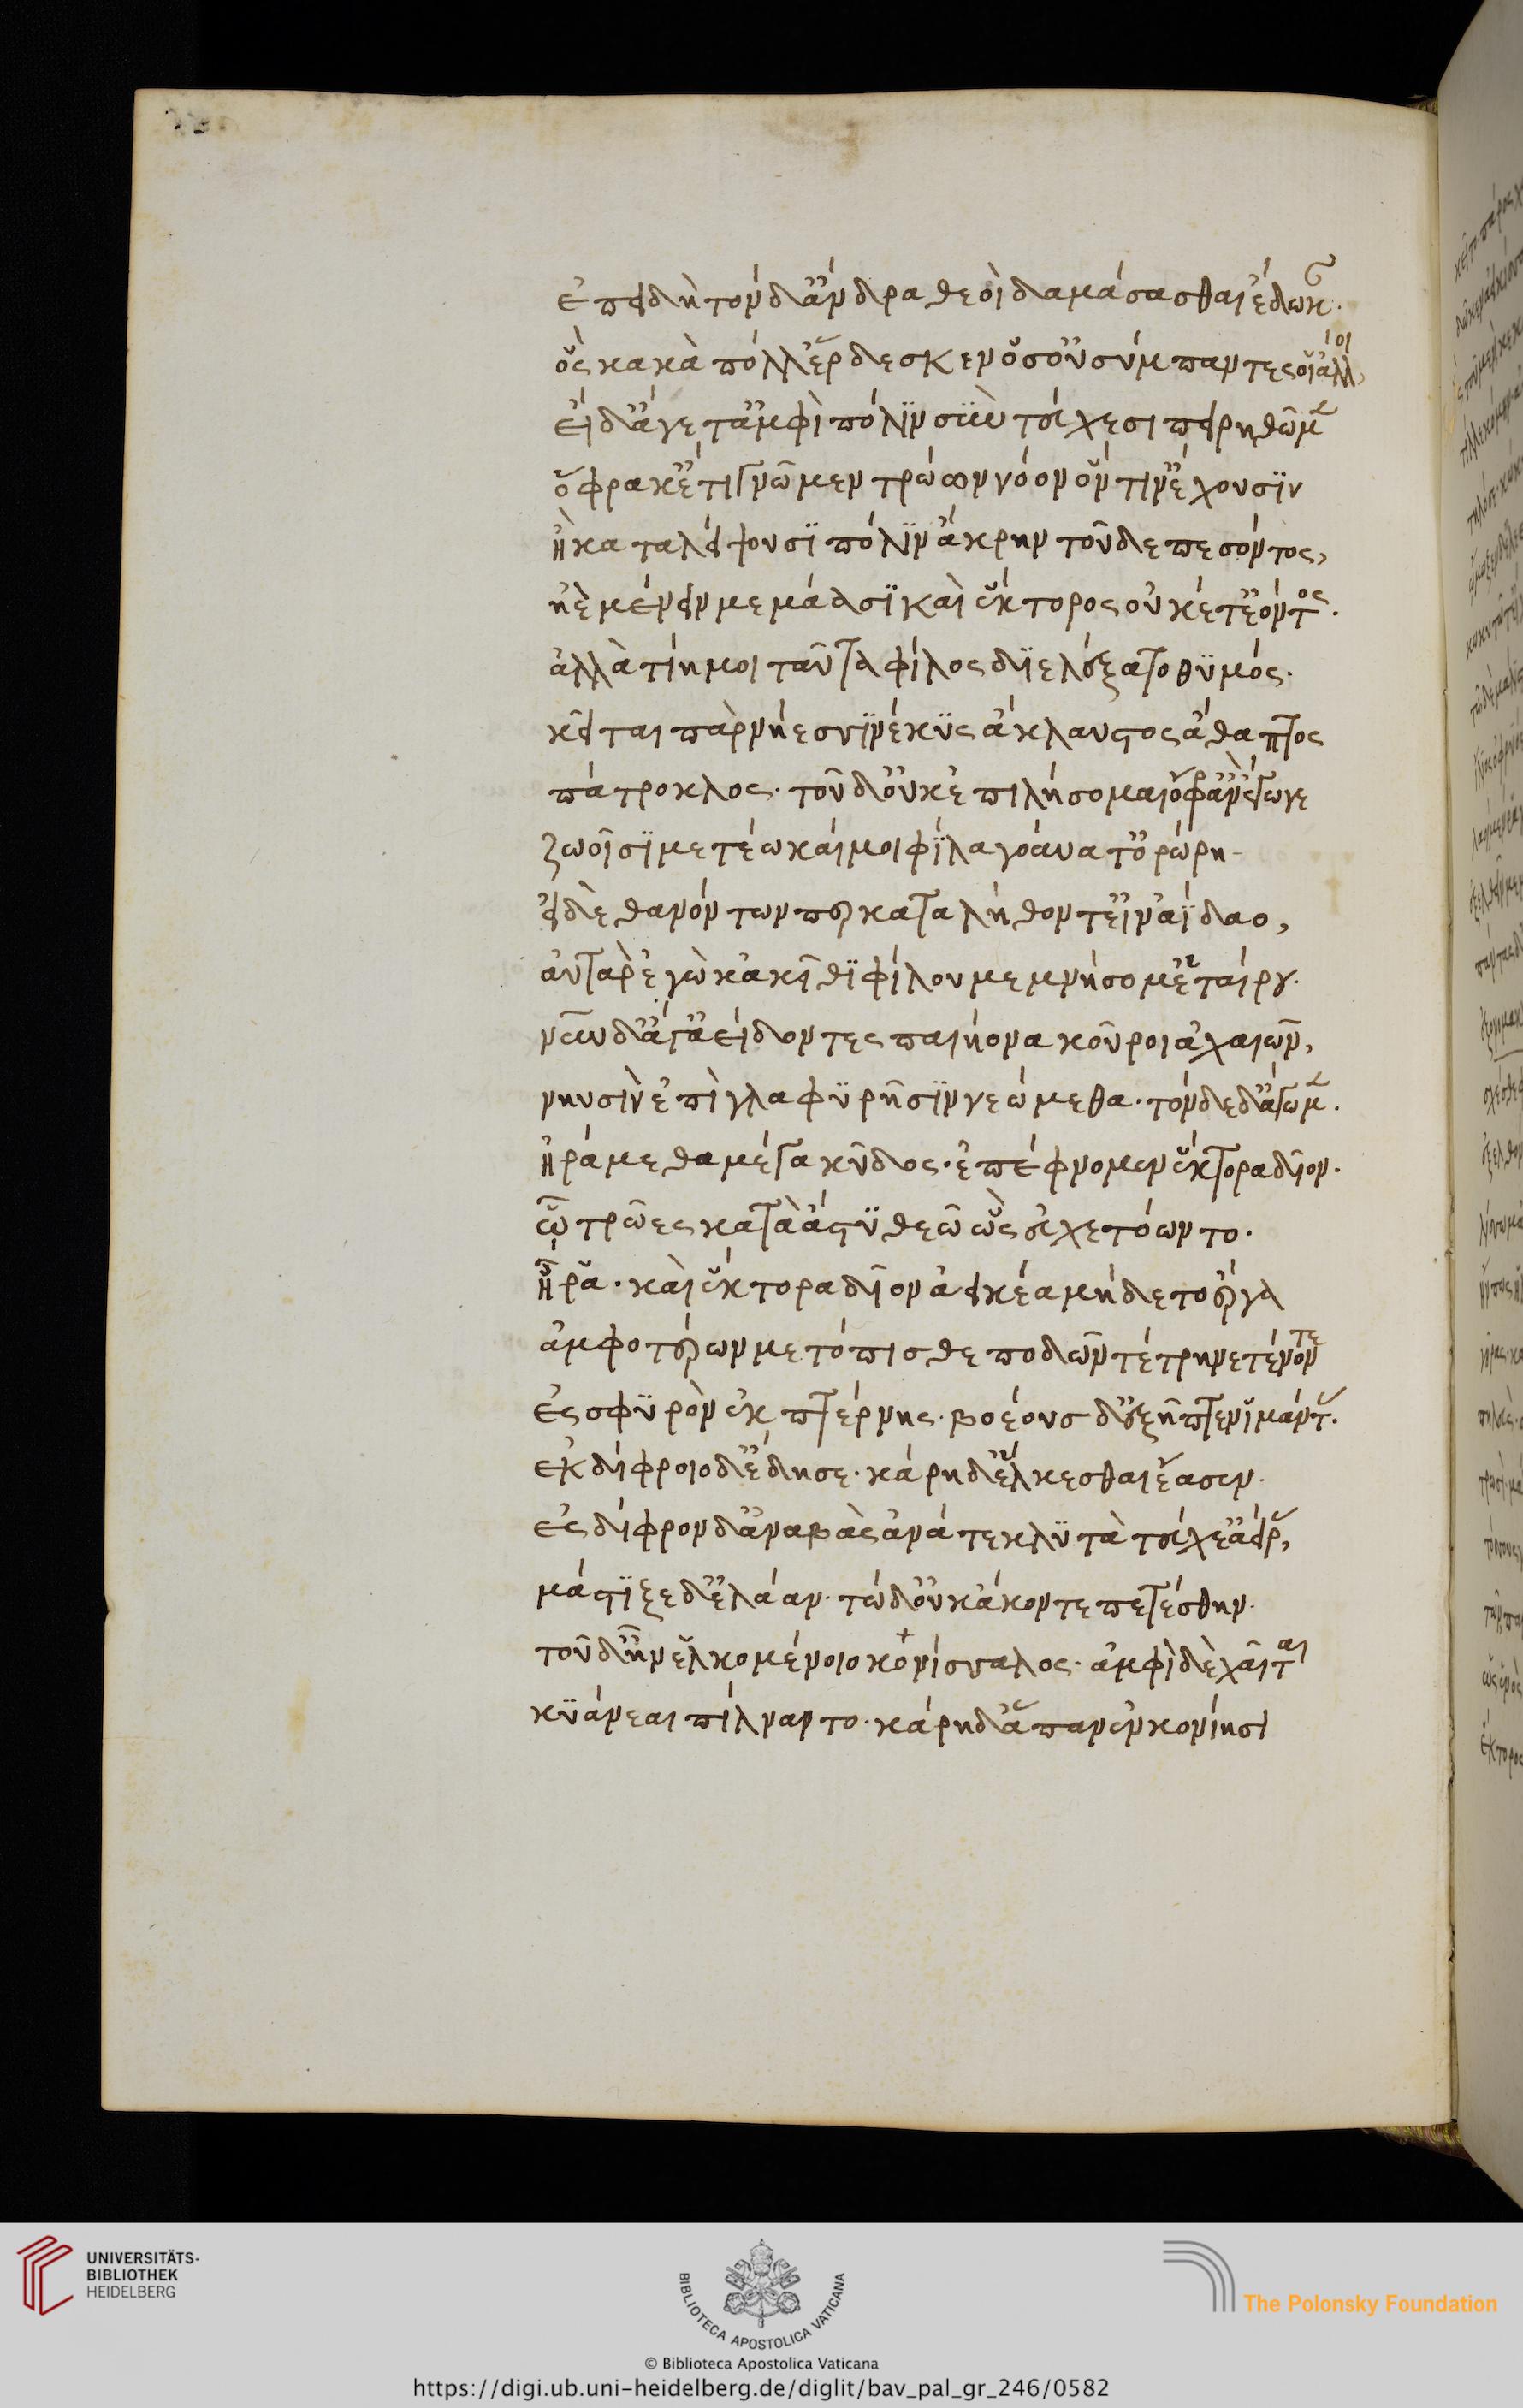 ἐπειδὴ τόνδ' ἄνδρα θεοὶ δαμάσασθαι ἔδωκαν.
ὃς κακὰ πόλλ' ἔρδεσκεν ὅσ' οὐ σύμπαντες οἱ ἄλλοι,
εἰ δ' ἄγετ' ἀμφὶ πόλϊν σὺν τεύχεσι πειρηθῶμεν
ὄφρα κ' ἔτι γνῶμεν τρώων νόον ὅν τιν' ἔχουσϊν
ἢ καταλείψουσϊ πόλϊν ἄκρην τοῦδε πεσόντος,
ἠὲ μένειν μεμάασϊ καὶ ἕκτορος οὐκέτ' ἐόντος.
ἀλλὰ τίη μοι ταῦτα φίλος δϊελέξατο θϋμός.
κεῖται πὰρ νήεσσϊ νέκϋς ἄκλαυστος ἄθαπτος
πάτροκλος. τοῦ δ' οὐκ ἐπιλήσομαι ὄφρ' ἂν ἔγωγε
ζωοῖσϊ μετέω καί μοι φίλα γούνατ' ὀρώρη
εἰ δὲ θανόντων περ καταλήθοντ' εἰν ἀΐδαο,
αὐτὰρ ἐγὼ κἀκεῖθϊ φίλου μεμνήσομ' ἑταίρου.
νῦν δ' ἄγ' ἀείδοντες παιήονα κοῦροι ἀχαιῶν,
νηυσὶν ἐπὶ γλαφϋρῇσϊ νεώμεθα. τόνδε δ' ἄγωμεν.
ἠράμεθα μέγα κῦδος. ἐπέφνομεν ἕκτορα δῖον.
ᾧ τρῶες κατὰ ἄστϋ θεῷ ὣς εὐχετόωντο.
ἦ ῥα. καὶ ἕκτορα δῖον ἀεικέα μήδετο ἔργα
ἀμφοτέρων μετόπισθε ποδῶν τέτρηνε τένοντε
ἐς σφϋρὸν ἐκ πτέρνης. βοέους δ' ἐξῆπτεν ἱμάντας.
ἐκ δίφροιο δ' ἔδησε. κάρη δ' ἕλκεσθαι ἔασεν.
ἐς δίφρον δ' ἀναβὰς ἀνά τε κλϋτὰ τεύχε' ἀείρας,
μάστϊξε δ' ἐλάαν. τὼ δ' οὐκ ἄκοντε πετέσθην.
τοῦ δ' ἦν ἑλκομένοιο κονίσσαλος. ἀμφὶ δὲ χαῖται
κϋάνεαι πίλναντο. κάρη δ' ἅπαν ἐν κονίησι
UNIVERSITÄTS-
BIBLIOTHEK
HEIDELBERG
BIBLIOTECA APOSTOLICA VATICANA
The Polonsky Foundation
© Biblioteca Apostolica Vaticana
https://digi.ub.uni-heidelberg.de/diglit/bav_pal_gr_246/0582